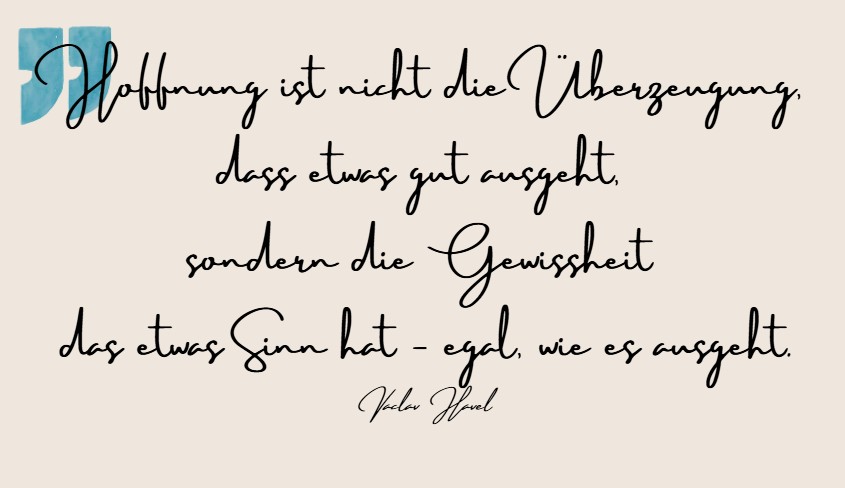 Hoffnung ist nicht die Überzeugung,
dass etwas gut ausgeht,
sondern die Gewissheit
das etwas Sinn hat - egal, wie es ausgeht.
Vaclav Havel